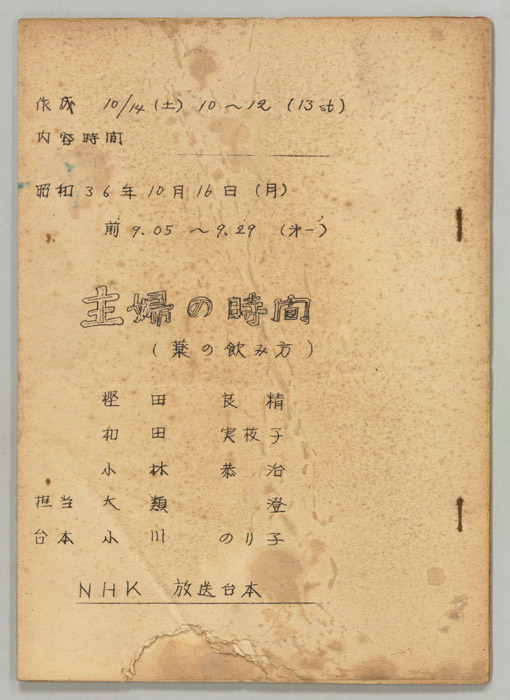 作成 10/14(土) 10～12 (13st)
内容時間
昭和36年10月16日(月)
前9.05～9.29 (第一)
主婦の時間
(薬の飲み方)
樫田 良精
和田 実枝子
小林 恭治
担当 大類 澄
台本 小川 のり子
NHK 放送台本